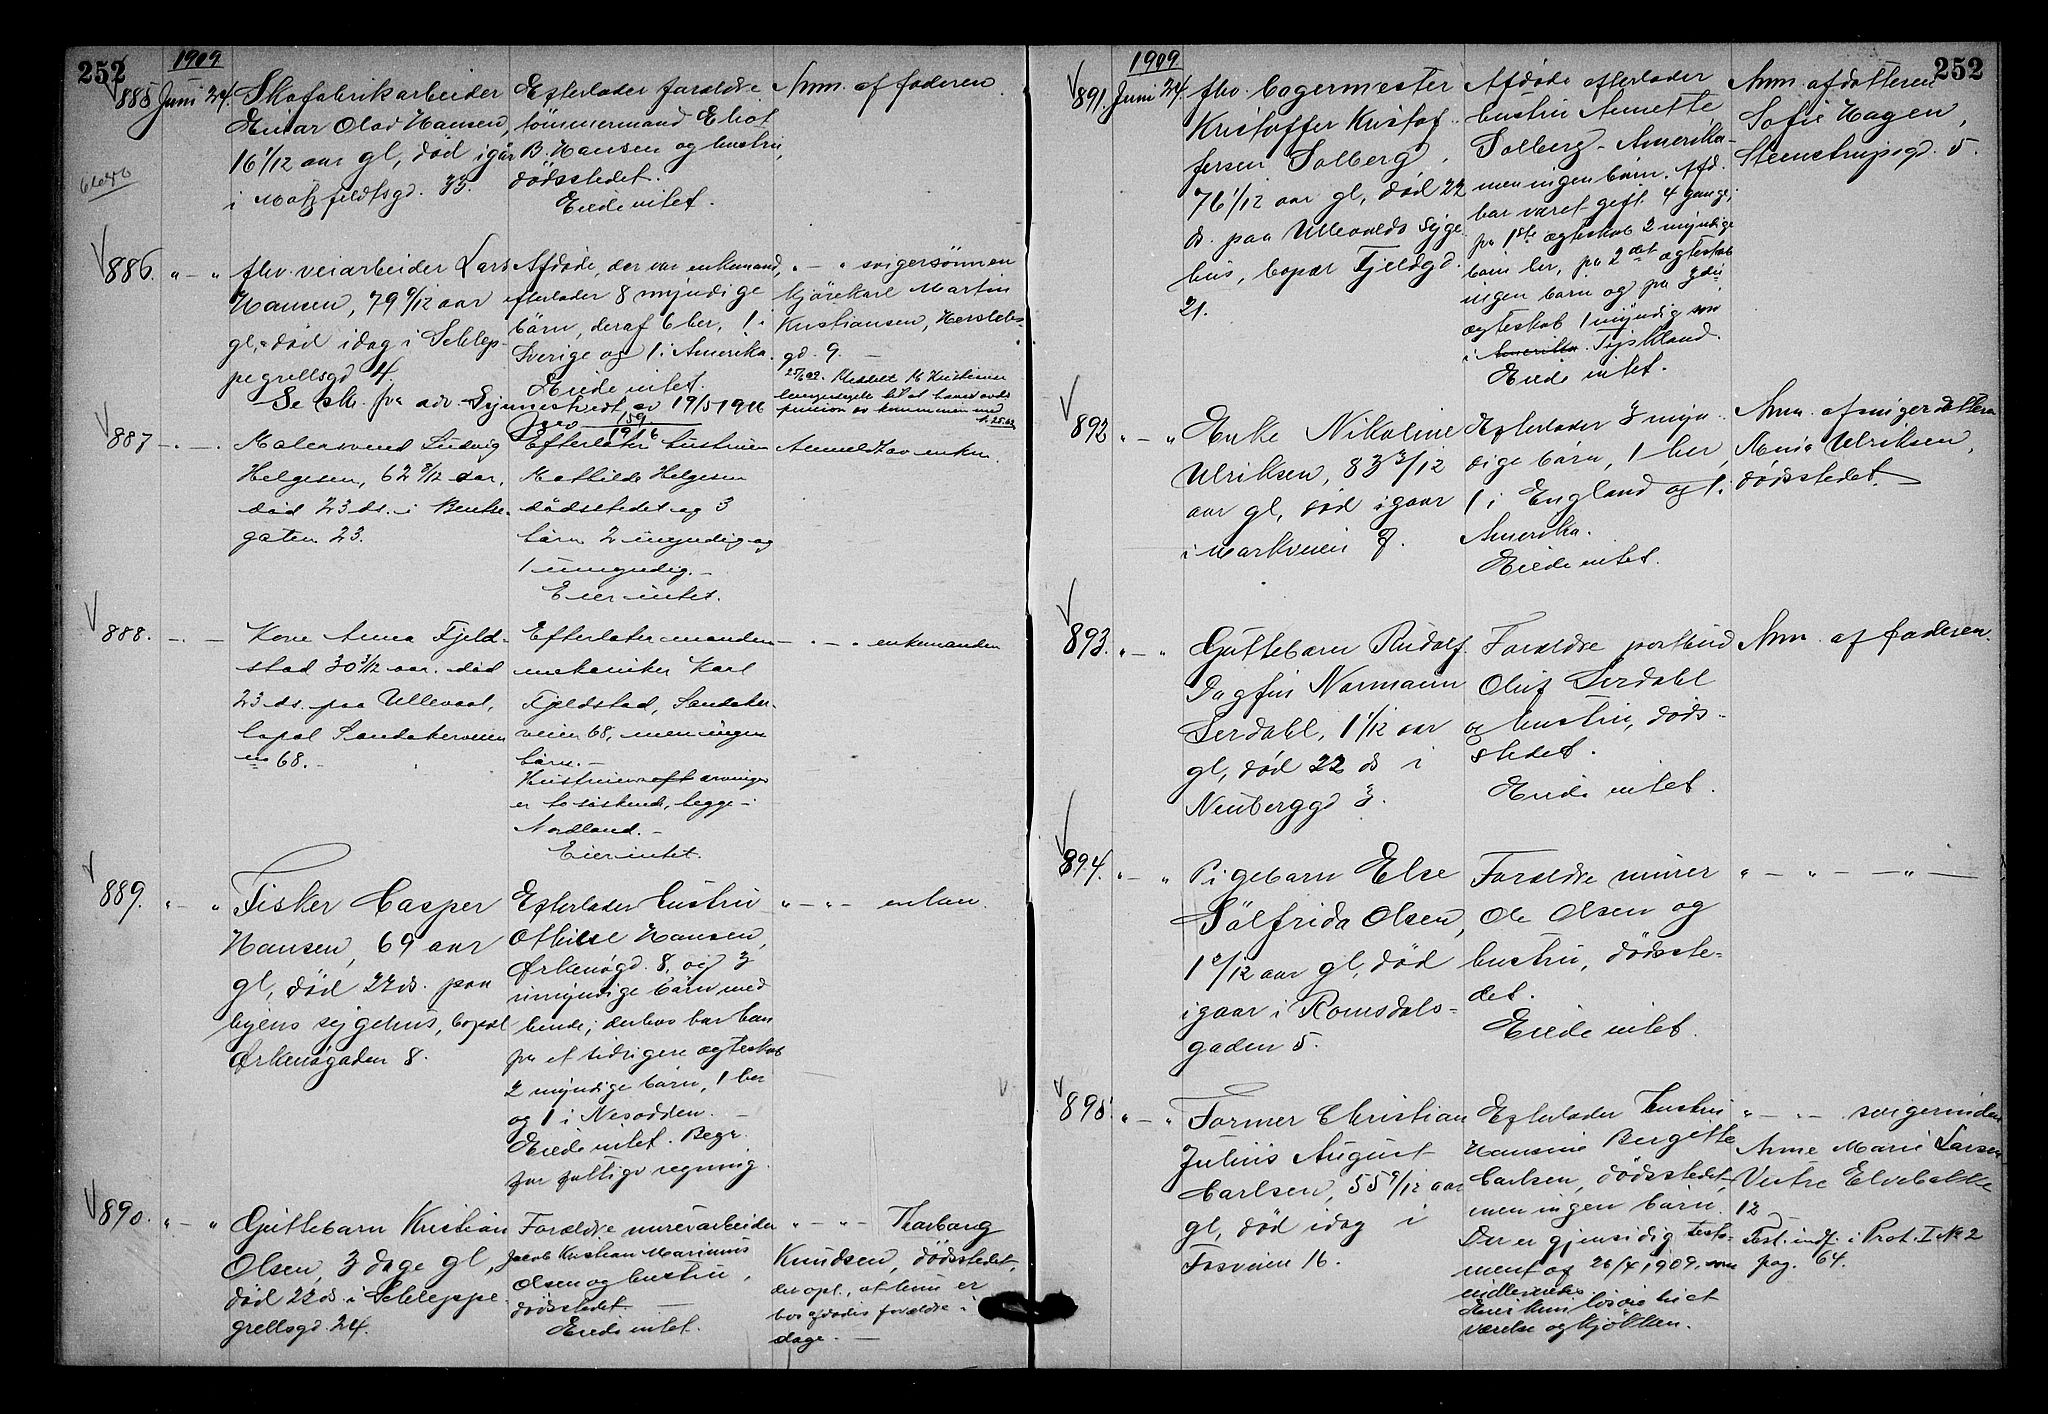 252
1909
885 Juni 24. Skofabrikarbeider
Einar Olad Hansen,
16 1/12 aar gl, død igår
i Motzfeldtsgd. 33.
6646
Efterlader forældre
tømmermand Eliot
B. Hansen og hustru,
dødsstedet.
Eiede intet.
Anm. af faderen.
886. " - " fhv. veiarbeider Lars
Hansen, 79 9/12 aar
gl, død idag i Schlep-
pegrellsgd 4.
Afdøde, der var enkemand,
efterlader 8 myndige
børn, deraf 6 her, 1 i
Sverige og 1 i Amerika.
Eiede intet.
" - " svigersønnen
kjørekarl Martin
Kristiansen, Herslebs-
gd. 9. -
Se skr. fra adv. av 19/5 1916
887 - . - . Malersvend Ludvig
Helgesen, 62 8/12 aar,
død 23 ds. i Bentse-
gaten 23.
Efterlater hustruen
Mathilde Helgesen
dødsstedet og 3
børn 2 myndig og
1 umyndig. -
Eier intet.
Anmeldt av enken.
888. - . - Kone Anna Fjeld-
stad 30 3/12 aar. død
23 ds. paa Ullevaal,
bopæl Sandakerveien
no 68. -
Efterlater manden
mekaniker Karl
Fjeldstad, Sandaker-
veien 68, men ingen
børn. -
arvinger
er to søskende, begge i
Nordland. -
Eier intet.
- " - " enkemanden
889. " - " Fisker Casper
Hansen, 69 aar
gl, død 22 ds. paa
byens sygehus, bopæl
Ørkenøgaden 8.
Efterlader hustru
Othilie Hansen,
Ørkenøgd. 8, og 3
umyndige børn med
hende; derhos har han
fra et tidrigere ægteskab
2 myndige børn, 1 her
og 1 i Nesodden. -
Eiede intet. Begr.
for fattigv regning.
" - " - enken.
890. " - " Guttebarn Kristian
Olsen, 3 dage gl,
død 22 ds. i Schleppe
grellsgd. 24.
Forældre murerarbeider
Jacob Kristian Marinius
Olsen og hustru,
dødsstedet -
Eiede intet.
" - " - Thorborg
Knudsen, dødsstedet,
der opl., at hun er
hos afdødes forældre i
dage. -
252
1909
891. Juni 24. fhv. bagermester
Kristoffer Kristof-
fersen Solberg,
76 1/12 aar gl, død 22
ds. paa Ullevolds syge
hus, bopæl Fjeldgd.
21.
Afdøde efterlader
hustru Annette
Solberg - Amerika -
men ingen børn. Afd.
har været gift 4 gange;
fra 1ste ægteskab 2 myndige
børn her, fra 2det ægteskab
ingen børn og fra 3die
ægteskab 1 myndig søn
i Amerika. Tyskland.
Eiede intet.
Anm. af datteren
Sofie Hagen,
Steenstrupsgd. 5.
892 " - " Enke Nikoline
Ulriksen, 83 3/12
aar gl, død igaar
i Markveien 8.
Efterlader 3 myn-
dige børn, 1 her,
1 i England og 1 i
Amerika.
Eiede intet.
Anm. af svigerdatteren
Ulriksen,
dødsstedet. -
893. " - " Guttebarn Rudolf
Dagfin Normann
Serdahl, 1 1/12 aar
gl, død 22 ds i
Neuberggd 3.
Forældre postbud
Oluf Serdahl
og hustru, døds-
stedet.
Eiede intet.
Anm. af faderen.
894. " - " Pigebarn Else
Sølfrida Olsen,
1 2/12 aar gl, død
igaar i Romsdals-
gaden 5.
Forældre murer
Ole Olsen og
hustru, dødsste-
det.
Eiede intet.
" - " - - " -
895. " - " Former Christian
Julius August
Carlsen, 55 9/12 aar
gl, død idag i
Fosveien 16.
Efterlader hustru
Hansine Bergitte
Carlsen, dødsstedet,
men ingen børn.
Der er gjensidig testa-
ment af 26/4 1909, som
indleveres.
Eier kun løsøre til et
værelse og kjøkken.
" - " - svigerinden
Anne Marie Larsen
Vestre Elvebakke
12
Test. indf. i Prot. I No 2
pag. 64.